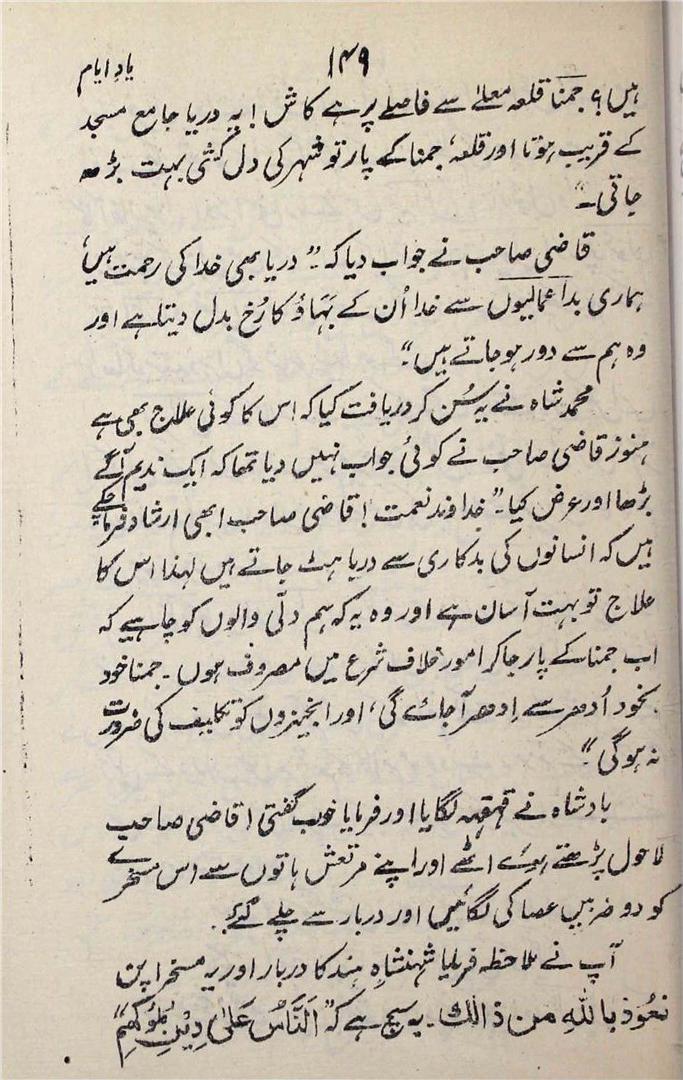 ۱۴۹
یادِ ایام
ہیں؟ جمنا قلعہ معلےٰ سے فاصلے پر ہے کاش! یہ دریا جامع مسجد
کے قریب ہوتا اور قلعہ، جمنا کے پار تو شہر کی دل کشی بہت بڑھ
جاتی۔"
قاضی صاحب نے جواب دیا کہ۔" دریا بھی خدا کی رحمت ہیں،
ہماری بد اعمالیوں سے خدا اُن کے بہَاؤ کا رُخ بدل دیتا ہے اور
وہ ہم سے دور ہو جاتے ہیں"۔
محمد شاہ نے یہ سُن کر دریافت کیا کہ اس کا کوئی علاج بھی ہے
ہنوز قاضی صاحب نے کوئی جواب نہیں دیا تھا کہ ایک ندیم آگے
بڑھا اور عرض کیا۔" خداوند نعمت! قاضی صاحب ابھی ارشاد فرما چکے
ہیں کہ انسانوں کی بدکاری سے دریا ہٹ جاتے ہیں لہٰذا اس کا
علاج تو بہت آسان ہے اور وہ یہ کہ ہم دلّی والوں کو چاہیے کہ
اب جمنا کے پار جا کر امور خلاف شرع میں مصروف ہوں۔ جمنا خود
بخود اُدھر سے اِدھر آ جائے گی، اور انجینروں کو تکلیف کی ضرورت
نہ ہو گی"۔
بادشاہ نے قہقہہ لگایا اور فرمایا خوب گفتی! قاضی صاحب
لاحول پڑھتے ہوئے اٹھے اور اپنے مرتعش ہاتوں سے اس مسخرے
کو دو ضربیں عصا کی لگائیں اور دربار سے چلے گئے۔
آپ نے ملاحظہ فرمایا شہنشاہِ ہند کا دربار اور یہ مسخرا پن
نعُوذ باللهِ من ذالك۔ یہ سچ ہے کہ "اَلنَّاسُ عَلیٰ دِیْنِ مُلُوکِهِمْ"